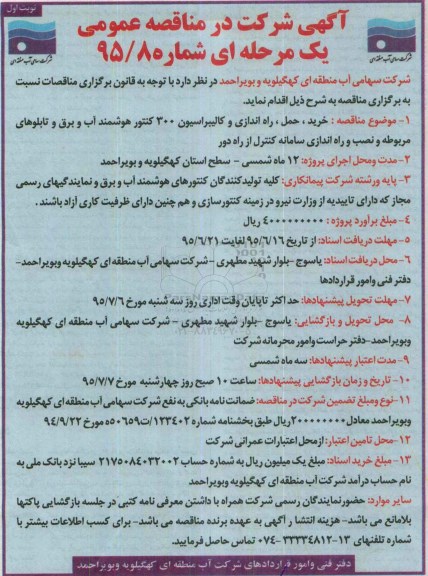 نوبت اول
آگهی شرکت در مناقصه عمومی
یک مرحله ای شماره ۹۵/۸
شرکت سهامی آب منطقه ای کهگیلویه و بویراحمد در نظر دارد با توجه به قانون برگزاری مناقصات نسبت
به برگزاری مناقصه به شرح ذیل اقدام نماید.
۱- موضوع مناقصه : خرید ، حمل ، راه اندازی و کالیبراسیون ۳۰۰ کنتور هوشمند آب و برق و تابلوهای
مربوطه و نصب و راه اندازی سامانه کنترل از راه دور
۲- مدت ومحل اجرای پروژه: ۱۲ ماه شمسی - سطح استان کهگیلویه و بویراحمد
۳- پایه ورشته شرکت پیمانکاری: کلیه تولیدکنندگان کنتورهای هوشمند آب و برق و نمایندگیهای رسمی
مجاز که دارای تاییدیه از وزارت نیرو در زمینه کنتورسازی و هم چنین دارای ظرفیت کاری آزاد باشند .
۴- مبلغ برآورد پروژه : ۴۰۰۰۰۰۰۰۰۰ ریال
۵- مهلت دریافت اسناد: از تاریخ ۹۵/۶/۱۶ لغایت ۹۵/۶/۲۱
۶- محل دریافت اسناد: یاسوج -بلوار شهید مطهری - شرکت سهامی آب منطقه ای کهگیلویه وبویراحمد-
دفتر فنی وامور قراردادها
۷- مهلت تحویل پیشنهادها: حداکثر تاپایان وقت اداری روز سه شنبه مورخ ۹۵/۷/۶
۸- محل تحویل و بازگشایی: یاسوج -بلوار شهید مطهری - شرکت سهامی آب منطقه ای کهگیلویه
وبویراحمد-دفتر حراست وامور محرمانه شرکت
۹- مدت اعتبار پیشنهادها: سه ماه شمسی
۱۰- تاریخ و زمان بازگشایی پیشنهادها: ساعت ۱۰ صبح روز چهارشنبه مورخ ۹۵/۷/۷
۱۱- نوع ومبلغ تضمین شرکت در مناقصه: ضمانت نامه بانکی به نفع شرکت سهامی آب منطقه ای کهگیلویه
وبویراحمد معادل ۲۰۰۰۰۰۰۰۰ ریال طبق بخشنامه شماره ۱۲۳۴۰۲/ت۵۰۶۵۹ه مورخ ۹۴/۹/۲۲
۱۲- محل تامین اعتبار: ازمحل اعتبارات عمرانی شرکت
۱۳- مبلغ خرید اسناد: مبلغ یک میلیون ریال به شماره حساب ۲۱۷۵۰۸۴۰۳۲۰۰۲ سیبا نزد بانک ملی به
نام حساب درآمد شرکت آب منطقه ای کهگیلویه وبویراحمد
سایر موارد: حضورنمایندگان رسمی شرکت همراه با داشتن معرفی نامه کتبی در جلسه بازگشایی پاکتها
بلامانع می باشد- هزینه انتشار آگهی به عهده برنده مناقصه می باشد- برای کسب اطلاعات بیشتر با
شماره تلفنهای ۱۳-۳۳۳۳۴۸۱۲-۰۷۴ تماس حاصل فرمایید.
دفتر فنی وامور قراردادهای شرکت آب منطقه ای کهگیلویه وبویراحمد